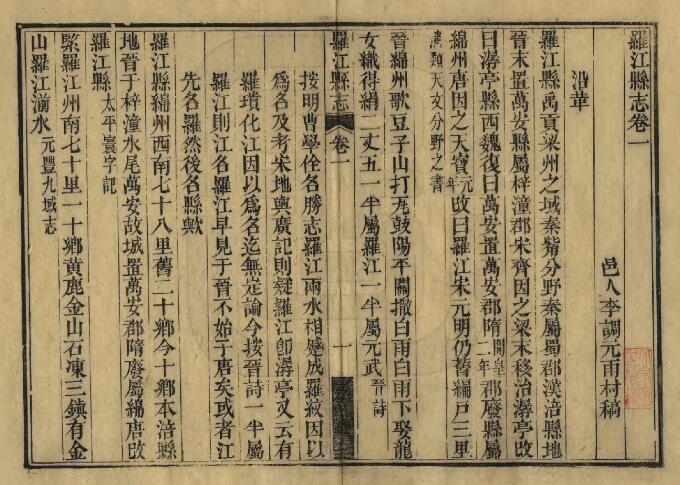 羅江縣志卷一
邑人李調元雨村稿
沿革
羅江縣禹貢梁州之域秦觜分野秦屬蜀郡漢涪縣地
晉末置萬安縣屬梓潼郡宋齊因之梁末移治潺亭改
曰潺亭縣西魏復曰萬安置萬安郡隋開皇二年郡廢縣屬
綿州唐因之天寶元年改曰羅江宋元明仍舊編戸三里
類天文分野之書
晉綿州歌豆子山打瓦鼓陽平關撒白雨白雨下娶龍
女織得絹二丈五一半屬羅江一半屬元武晉詩
羅江縣志
卷一
一
按明曹學佺名勝志羅江兩水相蹙成羅紋因以
爲名及考宋地輿廣記則疑羅江卽潺亭又云有
羅璝化江因以爲名迄無定論今按晉詩一半屬
羅江則江名羅江早見于晉不始于唐矣或者江
先名羅然後名縣歟
羅江縣綿州西南七十八里舊二十鄉今十鄉本涪縣
地晉于梓潼水尾萬安故城置萬安郡隋廢屬綿唐改
羅江縣太平寰宇記
緊羅江州南七十里一十鄉黃鹿金山石凍三鎮有金
山羅江湔水元豐九域志